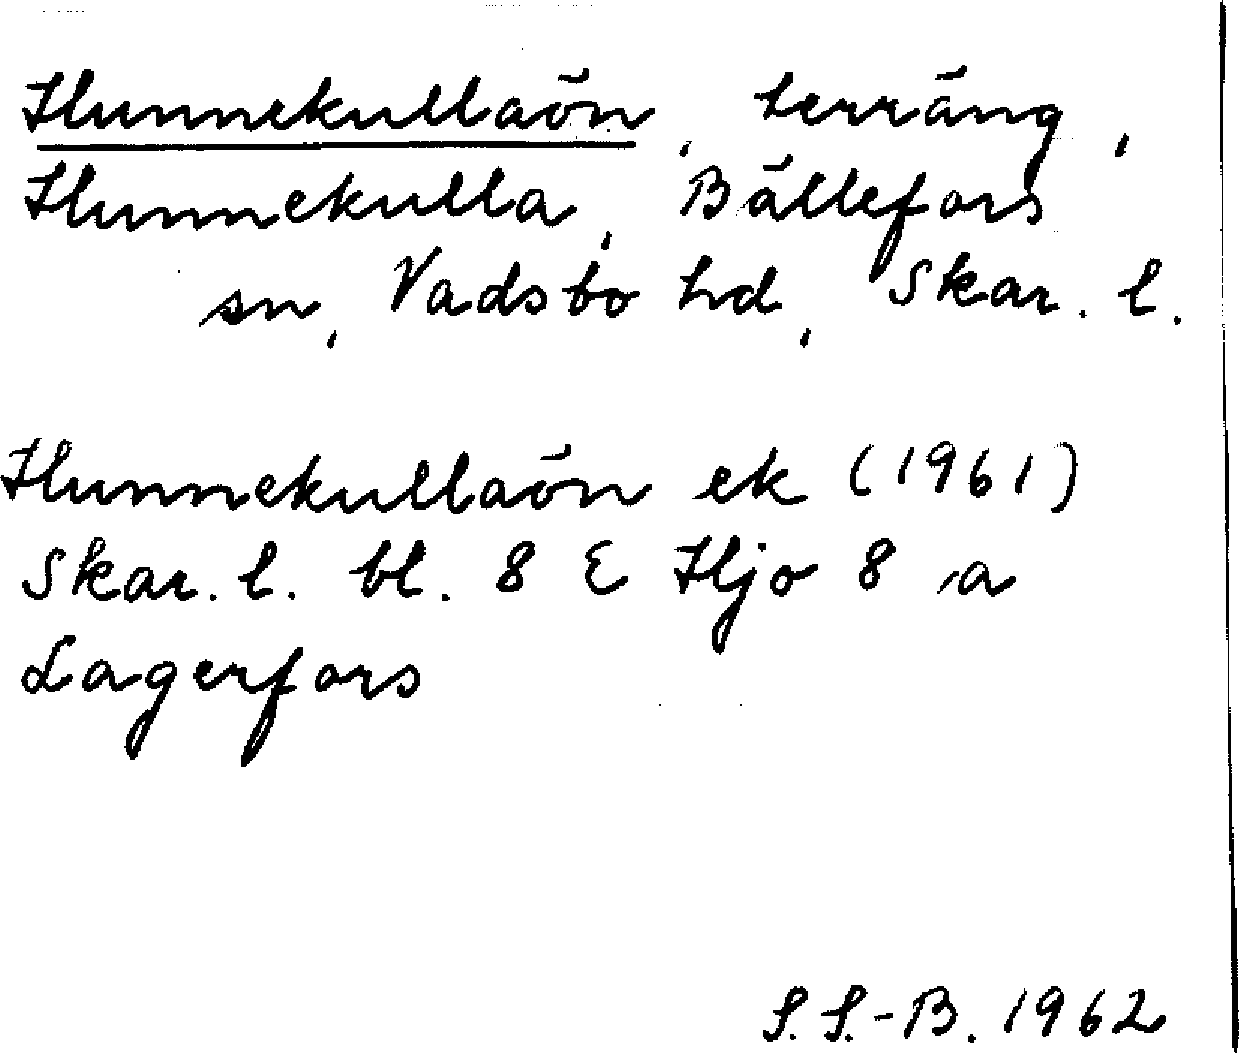 Hunnekullaön, terräng,
Hunnekulla, Bällefors
sn, Vadsbo hd, Skar. l.
Hunnekullaön ek (1961)
Skar. l. bl. 8 E Hjo 8 a
Lagerfors
S. S.-B. 1962